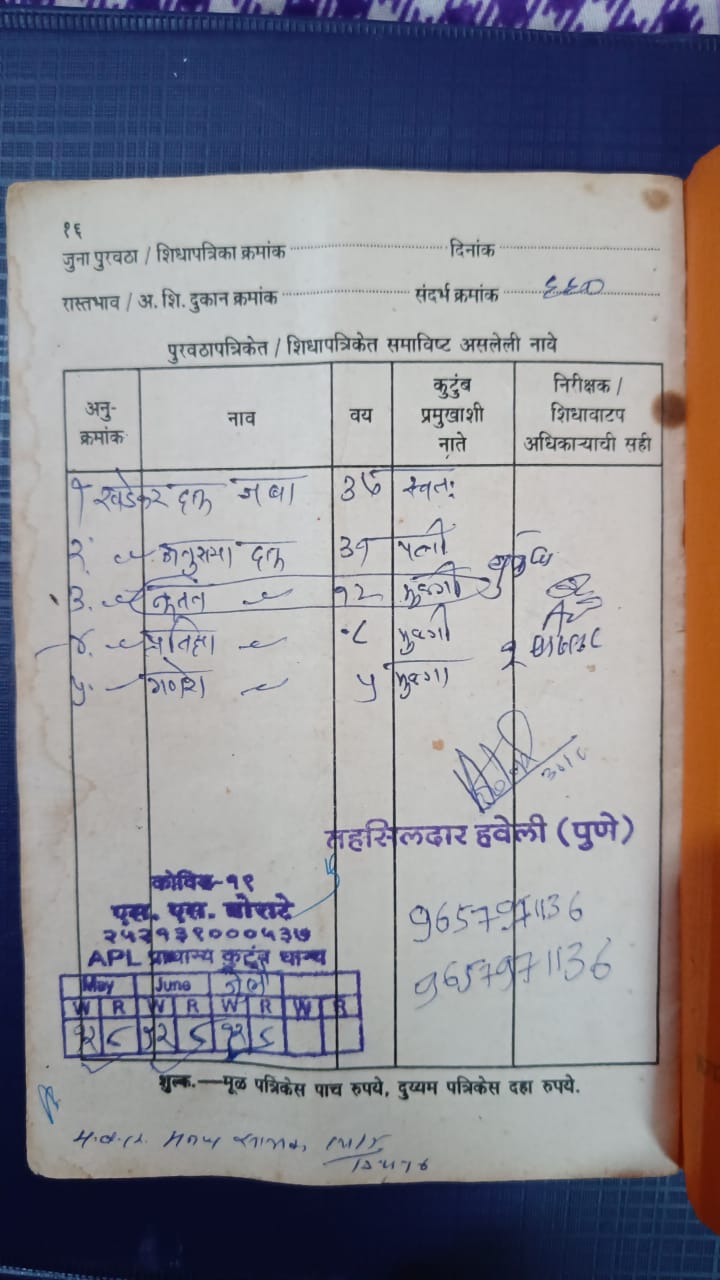 १६
जुना पुरवठा / शिधापत्रिका क्रमांक दिनांक
रास्तभाव / अ. शि. दुकान क्रमांक संदर्भ क्रमांक ६६०
पुरवठापत्रिकेत / शिधापत्रिकेत समाविष्ट असलेली नावे
अनु-क्रमांक नाव वय कुटुंब प्रमुखाशी नाते निरीक्षक / शिधावाटप अधिकाऱ्याची सही
१ खडेकर दत्त ३७ स्वतः
२. अनुसया दत्त ३१ पत्नी
३. नुतन १२ मुलगी
४. ८ मुलगी
५. गणेश ५ मुलगा
तहसिलदार हवेली (पुणे)
कोविड-१९
एस. एस. बोराटे
२५२१३९०००५३७
APL प्राधान्य कुटुंब धान्य
May June
W R W R W R W R
१२ ८ १२ ८ १२ ८
9657971136
9657971136
शुल्क.—मूळ पत्रिकेस पाच रुपये, दुय्यम पत्रिकेस दहा रुपये.